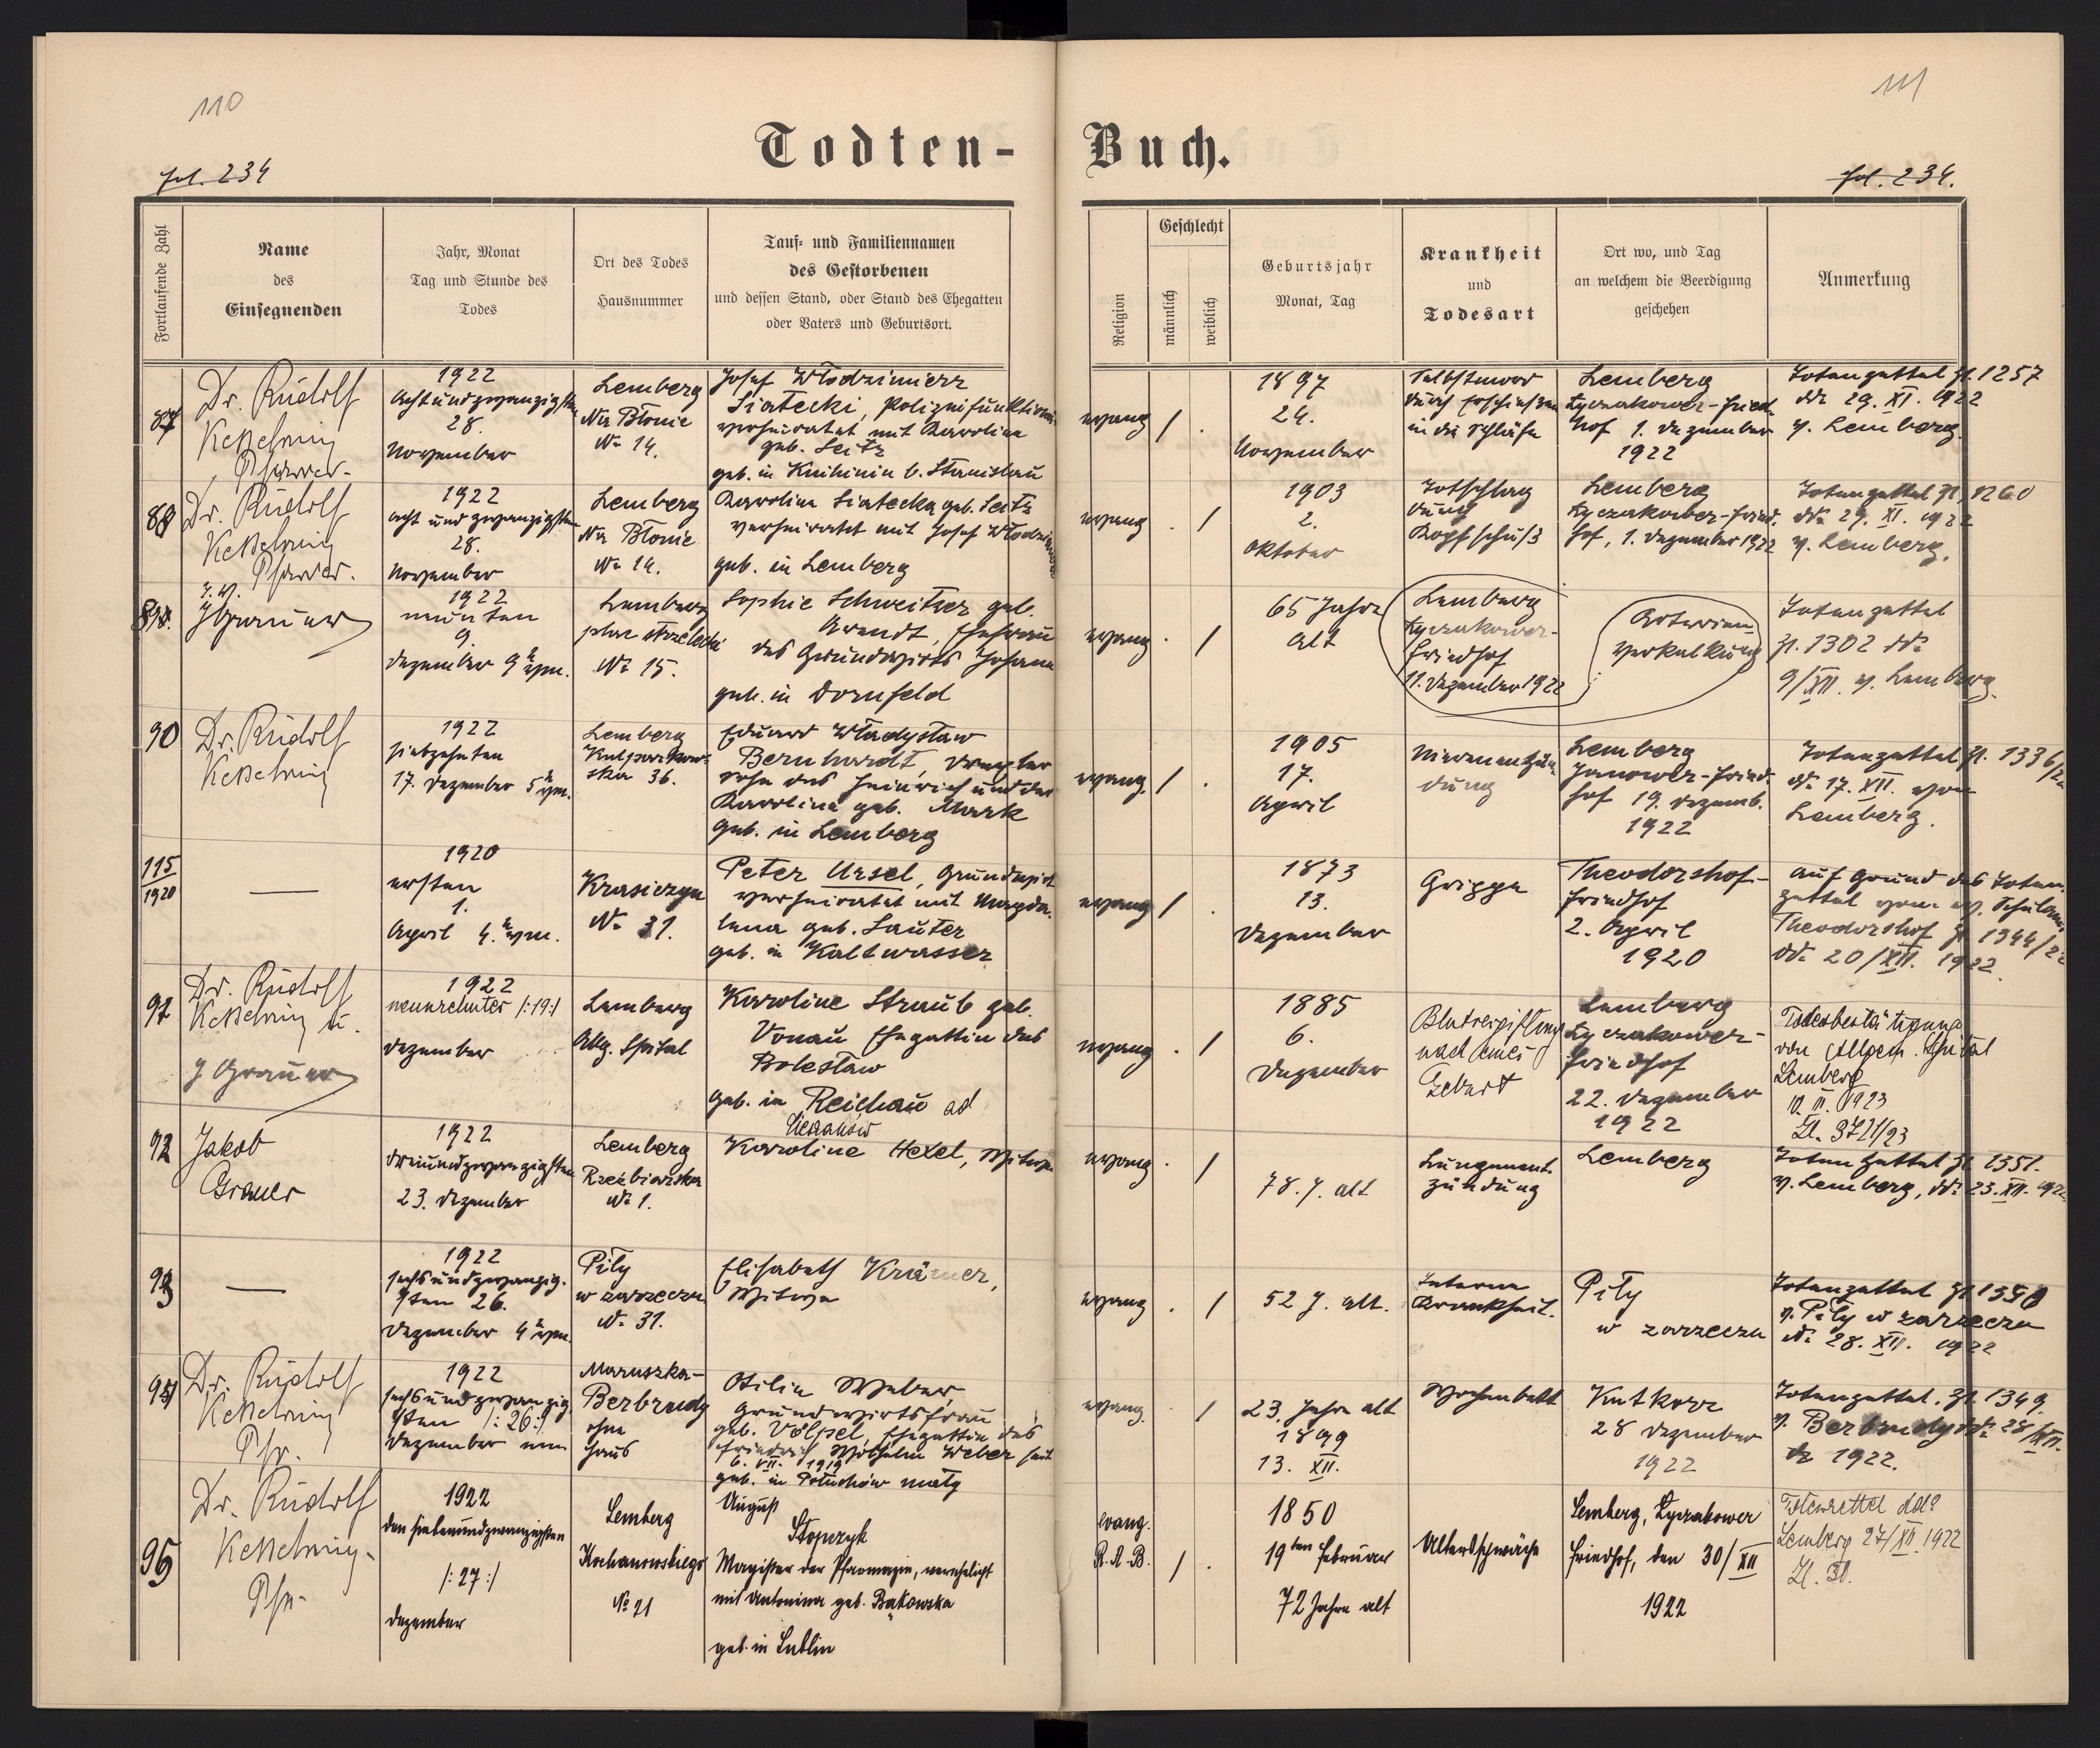 110
111
Todten-Buch.
fol. 234
fol. 234.
Fortlaufende Zahl
Name
des
Einsegnenden
Jahr, Monat
Tag und Stunde des
Todes
Ort des Todes
Hausnummer
Tauf- und Familiennamen
des Gestorbenen
und dessen Stand, oder Stand des Ehegatten
oder Vaters und Geburtsort.
Religion
Geschlecht
männlich
weiblich
Geburtsjahr
Monat, Tag
Krankheit
und
Todesart
Ort wo, und Tag
an welchem die Beerdigung
geschehen
Anmerkung
87
Dr. Rudolf
Kesselring
Pfarrer.
1922
achtundzwanzigsten
28.
November
Lemberg
Na Błonie
No 14.
Josef Włodzimierz
Siatecki,
verheiratet mit Karolina
geb. Seitz
geb. in Knihinin b. Stanislau
evang
/ .
1897
24.
November
Selbstmord
durch Erschießen
in die Schläfe
Lemberg
Lyczakower-Fried-
hof 1. Dezember
1922
Totenzettel Zl. 1257
ddo 29. XI. 1922
v. Lemberg.
88
Dr. Rudolf
Kesselring
Pfarrer.
1922
acht und zwanzigsten
28.
November
Lemberg
Na Błonie
No 14.
Karolina Siatecka geb. Seitz
verheiratet mit Josef
geb. in Lemberg
evang
. /
1903
2.
Oktober
Totschlag
durch
Kopfschuß
Lemberg
Lyczakower-Fried-
hof, 1. Dezember 1922
Totenzettel Zl. 1260
ddo 29. XI. 1922
v. Lemberg.
89.
J Grauer
1922
neunten
9.
Dezember 9 h vm.
Lemberg
plac strzelecki
No 15.
Sophie Schweitzer geb.
Arendt, Ehefrau
des Grundwirts Johann
geb. in Dornfeld
evang
. /
65 Jahre
alt
Lemberg
Lyczakower-
Friedhof
11. Dezember 1922
Arterien-
verkalkung
Totenzettel
Zl. 1302 ddo
9/XII. v. Lemberg.
90
Dr. Rudolf
Kesselring
1922
siebzehnten
17. Dezember 5 h vm.
Lemberg
Kulparkow-
ska 36.
Eduard Władysław
Bernhardt,
Sohn des Heinrich und der
Karolina geb. Mark
geb. in Lemberg
evang.
/ .
1905
17.
April
Nierenentzün-
dung
Lemberg
Janower-Fried-
hof 19. Dezemb.
1922
Totenzettel Zl. 1336/22
do 17. XII. von
Lemberg.
115
1920
—
1920
ersten
1.
April 4. h vm.
Krasiczyn
No 31.
Peter Ursel, Grundwirt
verheiratet mit Magda-
lena geb. Sauter
geb. in Kaltwasser
evang
/ .
1873
13.
Dezember
Grippe
Theodorshof-
Friedhof
2. April
1920
Auf Grund des Toten-
zettel vom ev.
Theodorshof Zl. 1344/22
ddo 20/XII. 1922.
91
Dr. Rudolf
Kesselring u.
J Grauer
1922
neunzehnter /:19:/
Dezember
Lemberg
Allg. Spital
Karoline Straub geb.
Vonau Ehegattin des
Bolesław
geb. in Reichau ad
Cieszanów
evang
. /
1885
6.
Dezember
Blutvergiftung
nach einer
Geburt
Lemberg
Lyczakower-
Friedhof
22. Dezember
1922
Todesbestätigung
von Allgem. Spital
Lemberg
12. III. 1923
Zl. 3721/23
92
Jakob
Grauer
1922
dreiundzwanzigsten
23. Dezember
Lemberg
Rzeźbiarska
No 1.
Karoline Hexel, Witwe
evang.
. /
78. J. alt
Lungenent-
zündung
Lemberg
Totenzettel Zl. 1351.
v. Lemberg, ddo 23. XII. 1922.
93
—
1922
sechsundzwanzig-
sten 26.
Dezember 4 h vm.
Piły
w zarzeczu
No 31.
Elisabeth Krämer,
Witwe
evang
. /
52 J. alt.
Interne
Krankheit.
Piły
w zarzeczu
Totenzettel Zl. 1350
v. Piły w zarzeczu
do 28. XII. 1922
94
Dr. Rudolf
Kesselring
Pfr.
1922
sechsundzwanzig-
sten /: 26:/
Dezember
Maruszka-
Berbrudy
ohne
Haus
Otilie Weber,
Grundwirtsfrau
geb. Völpel, Ehegattin des
Friedrich Wilhelm Weber seit
6. VII. 1919
geb. in mały
evang.
. /
23. Jahre alt
1899
13. XII.
Wochenbett
Kutkorz
28 Dezember
1922
Totenzettel. Zl. 1349.
v. Berbrudy ddo 28/XII.
1922.
95
Dr. Rudolf
Kesselring.
Pfr.
1922
den siebenundzwanzigsten
/: 27 :/
Dezember
Lemberg
Kochanowskiego
No 21
August
Stopczyk
Magister der Pharmazie, verehelicht
mit Antonina geb. Bąkowska
geb. in Lublin
evang.
R.A.B.
/ .
1850
19ten Februar
72 Jahre alt
Altersschwäche
Lemberg, Lyczakower
Friedhof, den 30/XII
1922
Totenzettel ddo
Lemberg 27/XII 1922
Zl. 30.